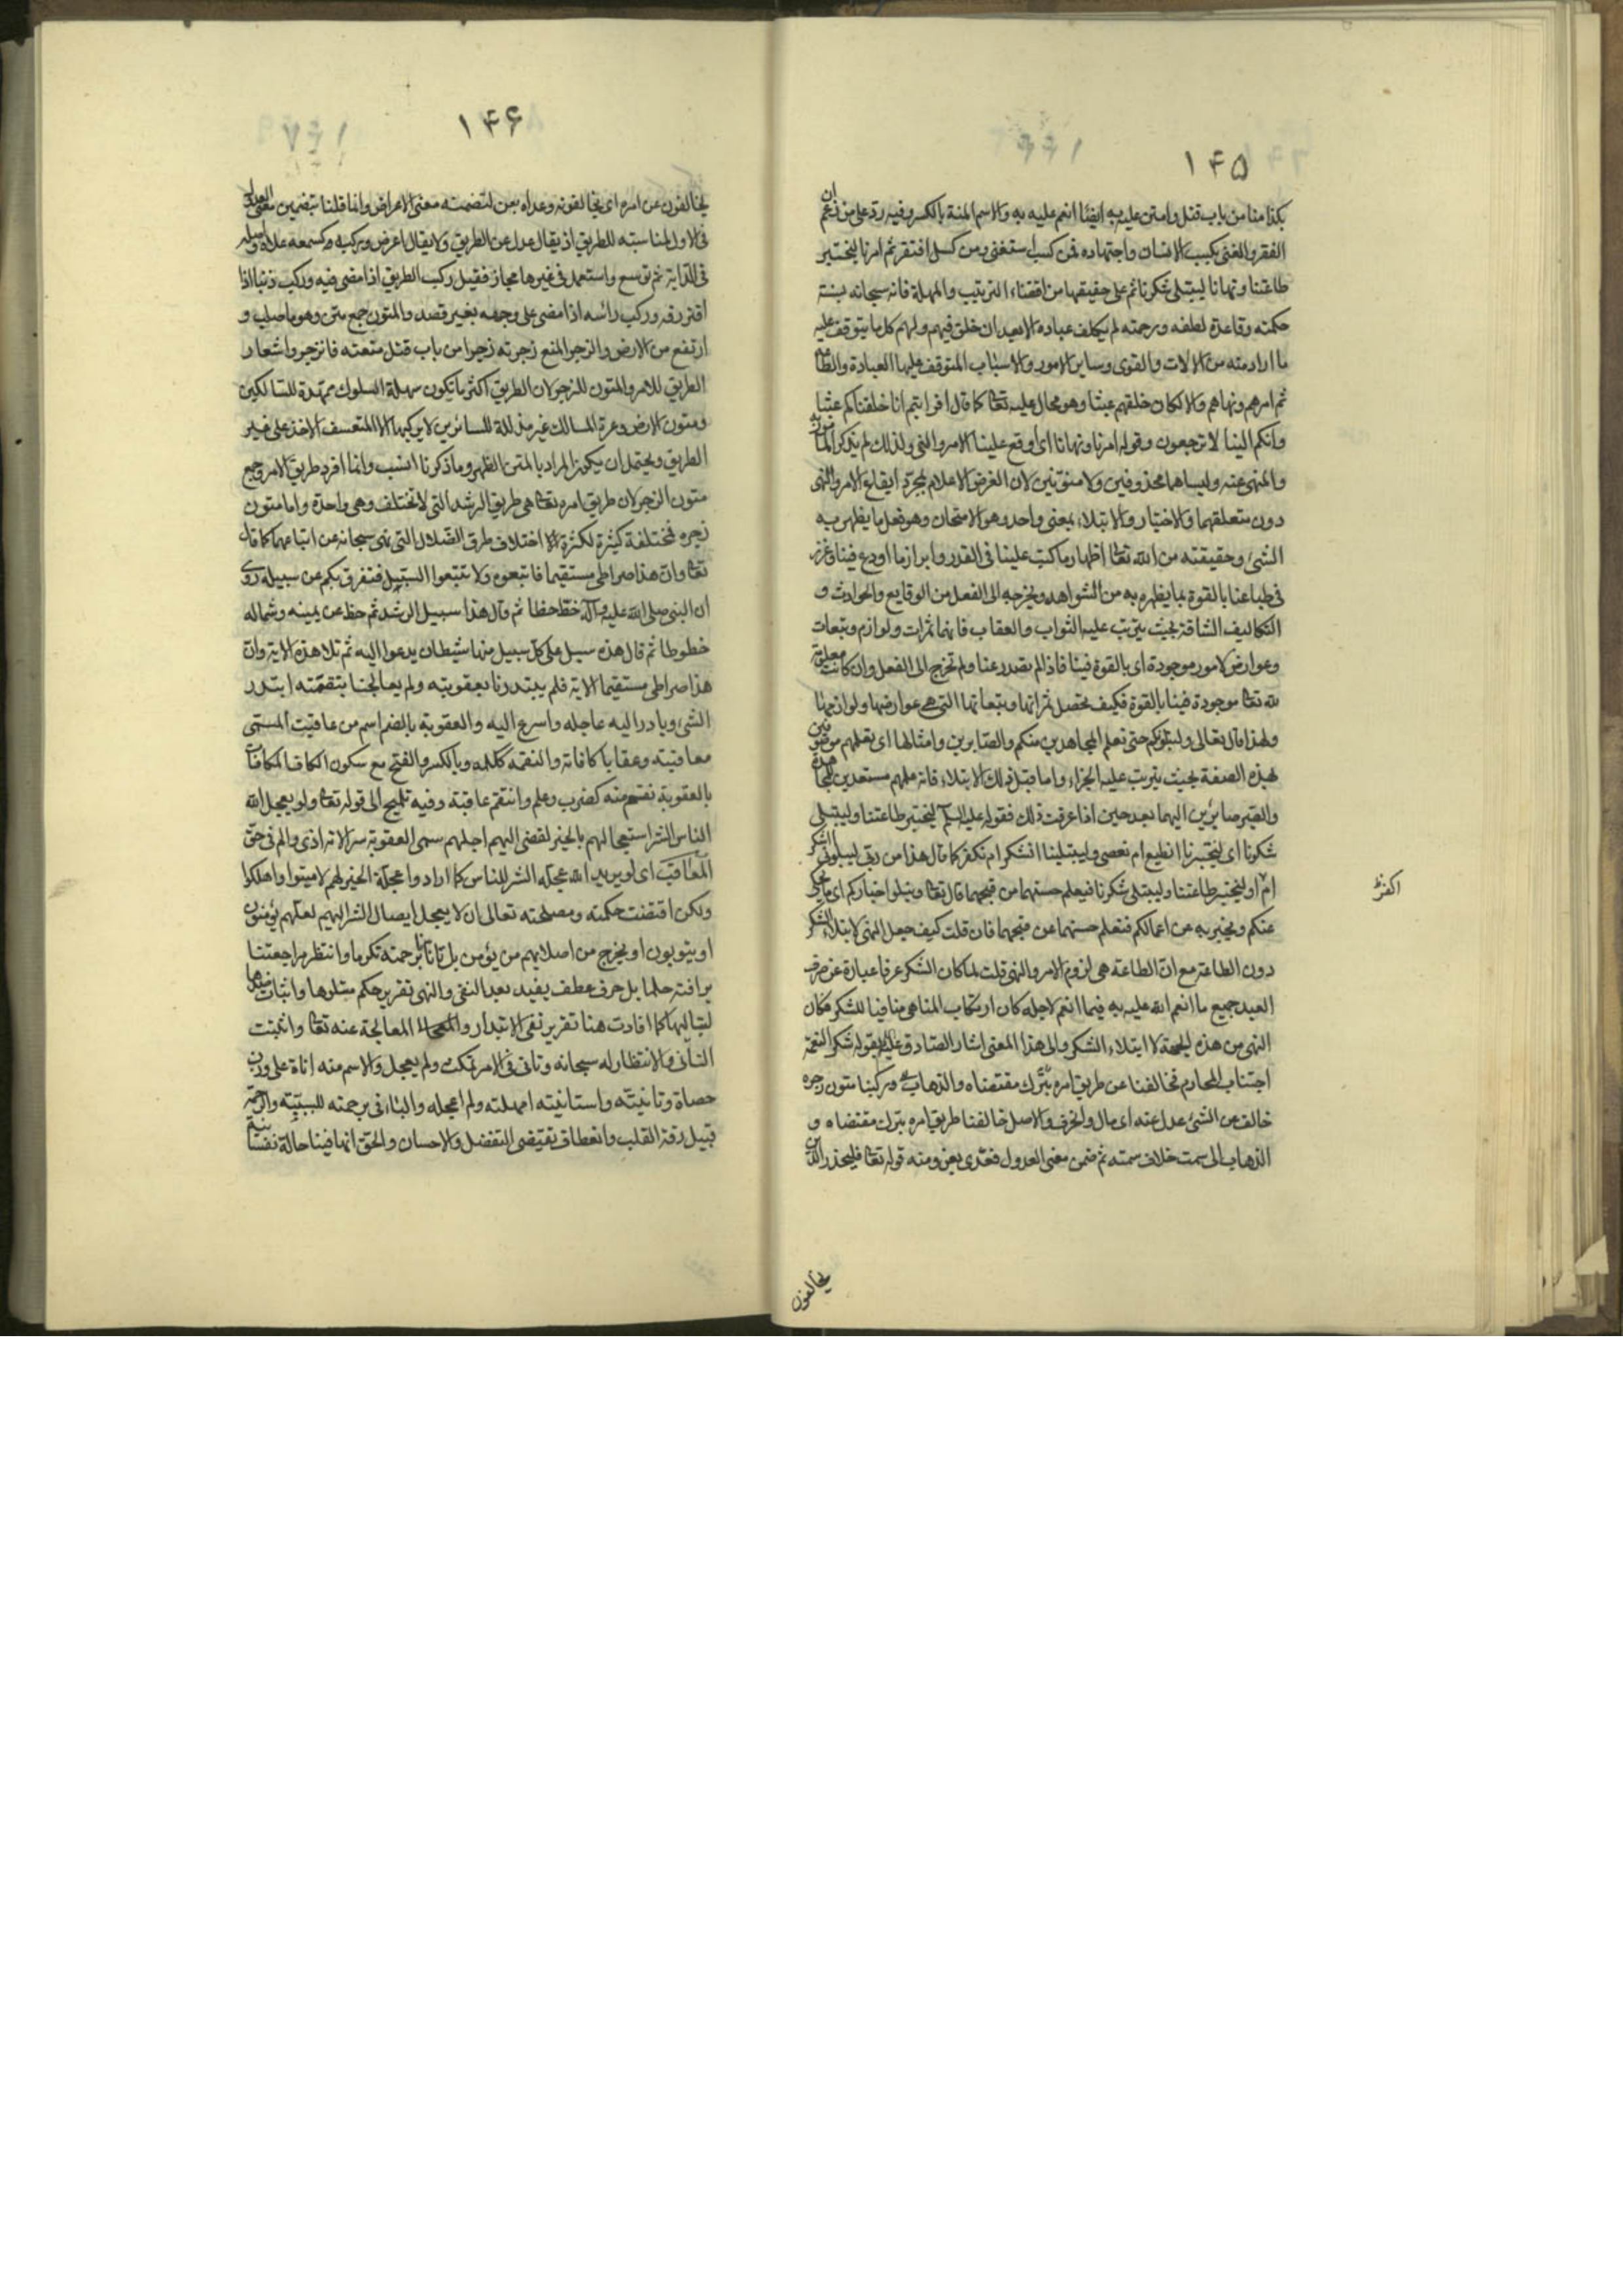 ١٤٥
بكذا منا من باب قتل وامتن عليه به ايضا انعم عليه به والاسم المنة بالكسر وفيه رد على من زعم ان
الفقر والغنى بكسب الانسان واجتهاده فمن كسب استغنى ومن كسل افتقر ثم امرنا ليختبر
طاعتنا ونهانا ليبتلى شكرنا ثم على حقيقتها من اقتضاء الترتيب والمهلة فانه سبحانه بسنة
حكمته وقاعدة لطفه ورحمته لم يكلف عباده الا بعد ان خلق فيهم ولهم كل ما يتوقف عليه
ما اراد منه من الالات والقوى وساير الامور والاسباب المتوقف عليها العبادة والطاعة
ثم امرهم ونهاهم والا لكان خلقهم عبثا وهو محال عليه تعالى كما قال افرايتم انا خلقناكم عبثا
وانكم الينا لا ترجعون وقوله امرنا ونهانا اى اوقع علينا الامر والنهى ولذلك لم يذكر المامور به
والمنهى عنه وليسا هما محذوفين ولا منويين لان الغرض الاعلام بمجرد ايقاع الامر والنهى
دون متعلقهما والاختبار والابتلاء بمعنى واحد وهو الامتحان وهو فعل ما يظهر به
الشئ وحقيقته من الله تعالى اظهار ما كتب علينا فى القدر وابراز ما اودع فينا وغرز
فى طباعنا بالقوة بما يظهره به من الشواهد ويخرجه الى الفعل من الوقايع والحوادث و
التكاليف الشاقة بحيث يترتب عليه الثواب والعقاب فانهما ثمرات ولوازم وتبعات
وعوارض لامور موجودة اى بالقوة فينا فاذا لم يصدر عنا ولم تخرج الى الفعل وان كانت معلومة
لله تعالى موجودة فينا بالقوة فكيف تحصل ثمراتها وتبعاتها التى هى عوارضها ولوازمها
ولهذا قال تعالى ولنبلونكم حتى نعلم المجاهدين منكم والصابرين وامثالها اى نعلمهم موصوفين
بهذه الصفة بحيث يترتب عليه الجزاء واما قبل ذلك الابتلاء فانه علمهم مستعدين للمجاهدة
والصبر صائرين اليهما بعد حين اذا عرفت ذلك فقوله عليه السلام ليختبر طاعتنا وليبتلى
شكرنا اى ليختبرنا انطيع ام نعصى وليبتلينا انشكر ام نكفر كما قال هذا من ربى ليبلونى ااشكر
ام اكفر او ليختبر طاعتنا وليبتلى شكرنا فيعلم حسنهما من قبحهما قال تعالى ونبلوا اخباركم اى ما يحكى
عنكم ويخبر به عن اعمالكم فنعلم حسنها من قبحها فان قلت كيف جعل النهى لابتلاء الشكر
دون الطاعة مع ان الطاعة هى لزوم الامر والنهى قلت لما كان الشكر عرفا عبارة عن صرف
العبد جميع ما انعم الله عليه به فيما انعم لاجله كان ارتكاب المناهى منافيا للشكر فكان
النهى من هذه الجهة لابتلاء الشكر والى هذا المعنى اشار الصادق عليه السلام بقوله شكر النعمة
اجتناب المحارم فخالفنا عن طريق امره بترك مقتضاه والذهاب وركبنا متون زجره
خالف عن الشئ عدل عنه اى مال وانحرف والاصل خالفنا طريق امره بترك مقتضاه و
الذهاب الى سمت خلاف سمته ثم ضمن معنى العدول فعدى بعن ومنه قوله تعالى فليحذر الذين
يخالفون
اكفر
١٤٦
يخالفون عن امره اى يخالفونه وعداه بعن لتضمنه معنى الاعراض وانما قلنا بتضمين معنى العدول
فى الاول لمناسبته للطريق اذ يقال عدل عن الطريق ولا يقال اعرض وركبه كسمعه علاه واصله
فى الدابة ثم توسع واستعمل فى غيرها مجازا فقيل ركب الطريق اذا مضى فيه وركب ذنبا اذا
اقترفه وركب رأسه اذا مضى على وجهه بغير قصد والمتون جمع متن وهو ما صلب و
ارتفع من الارض والزجر المنع زجرته زجرا من باب قتل منعته فانزجر واشعار
الطريق للامر والمتون للزجر لان الطريق اكثر ما يكون سهلة السلوك ممهدة للسالكين
ومتون الارض وعرة المسالك غير مذللة للسائرين لا يركبها الا المتعسف الاخذ على غير
الطريق ويحتمل ان يكون المراد بالمتن الظهر وما ذكرنا انسب وانما افرد طريق الامر وجمع
متون الزجر لان طريق امره تعالى هى طريق الرشد التى لا تختلف وهى واحدة واما متون
زجره فمختلفة كثيرة لكثرة اختلاف طرق الضلال التى نهى سبحانه عن اتباعها كما قال
تعالى وان هذا صراطى مستقيما فاتبعوه ولا تتبعوا السبل فتفرق بكم عن سبيله روى
ان النبى صلى الله عليه وآله خط خطا ثم قال هذا سبيل الرشد ثم خط عن يمينه وشماله
خطوطا ثم قال هذه سبل على كل سبيل منها شيطان يدعوا اليه ثم تلا هذه الاية وان
هذا صراطى مستقيما الاية فلم يبتدرنا بعقوبته ولم يعاجلنا بنقمته ابتدر
الشئ وبادر اليه عاجله واسرع اليه والعقوبة بالضم اسم من عاقبت المسئ
معاقبة وعقابا كافاته والنقمة ككلمة وبالكسر والفتح مع سكون القاف المكافاة
بالعقوبة نقم منه كضرب وعلم وانتقم عاقبة وفيه تلميح الى قوله تعالى ولو يعجل الله
الناس الشر استعجالهم بالخير لقضى اليهم اجلهم سمى العقوبة شرا لانه اذى والم فى حق
المعاقب اى لو يريد الله عجلة الشر للناس كما ارادوا عجلة الخير لهم لاميتوا واهلكوا
ولكن اقتضت حكمته ومصلحته تعالى ان لا يعجل ايصال الشر اليهم لعلهم يؤمنون
او يتوبون او يخرج من اصلابهم من يؤمن بل تانانا برحمته تكرما وانتظر مراجعتنا
برافته حلما بل حرف عطف يفيد بعد النفى والنهى تقرير حكم متلوها واثبات ضدها
لتاليها كما افادت هنا تقرير نفى الابتدار والمعاجلة عنه تعالى واثبتت
التأنى والانتظار له سبحانه وتأنى فى الامر تمكث ولم يعجل والاسم منه اناة على وزن
حصاة وتانيته واستانيته امهلته ولم اعجله والباء فى برحمته للسببية والرحمة
قيل رقة القلب وانعطاف يقتضى التفضل والاحسان والحق انها فينا حالة نفسانية